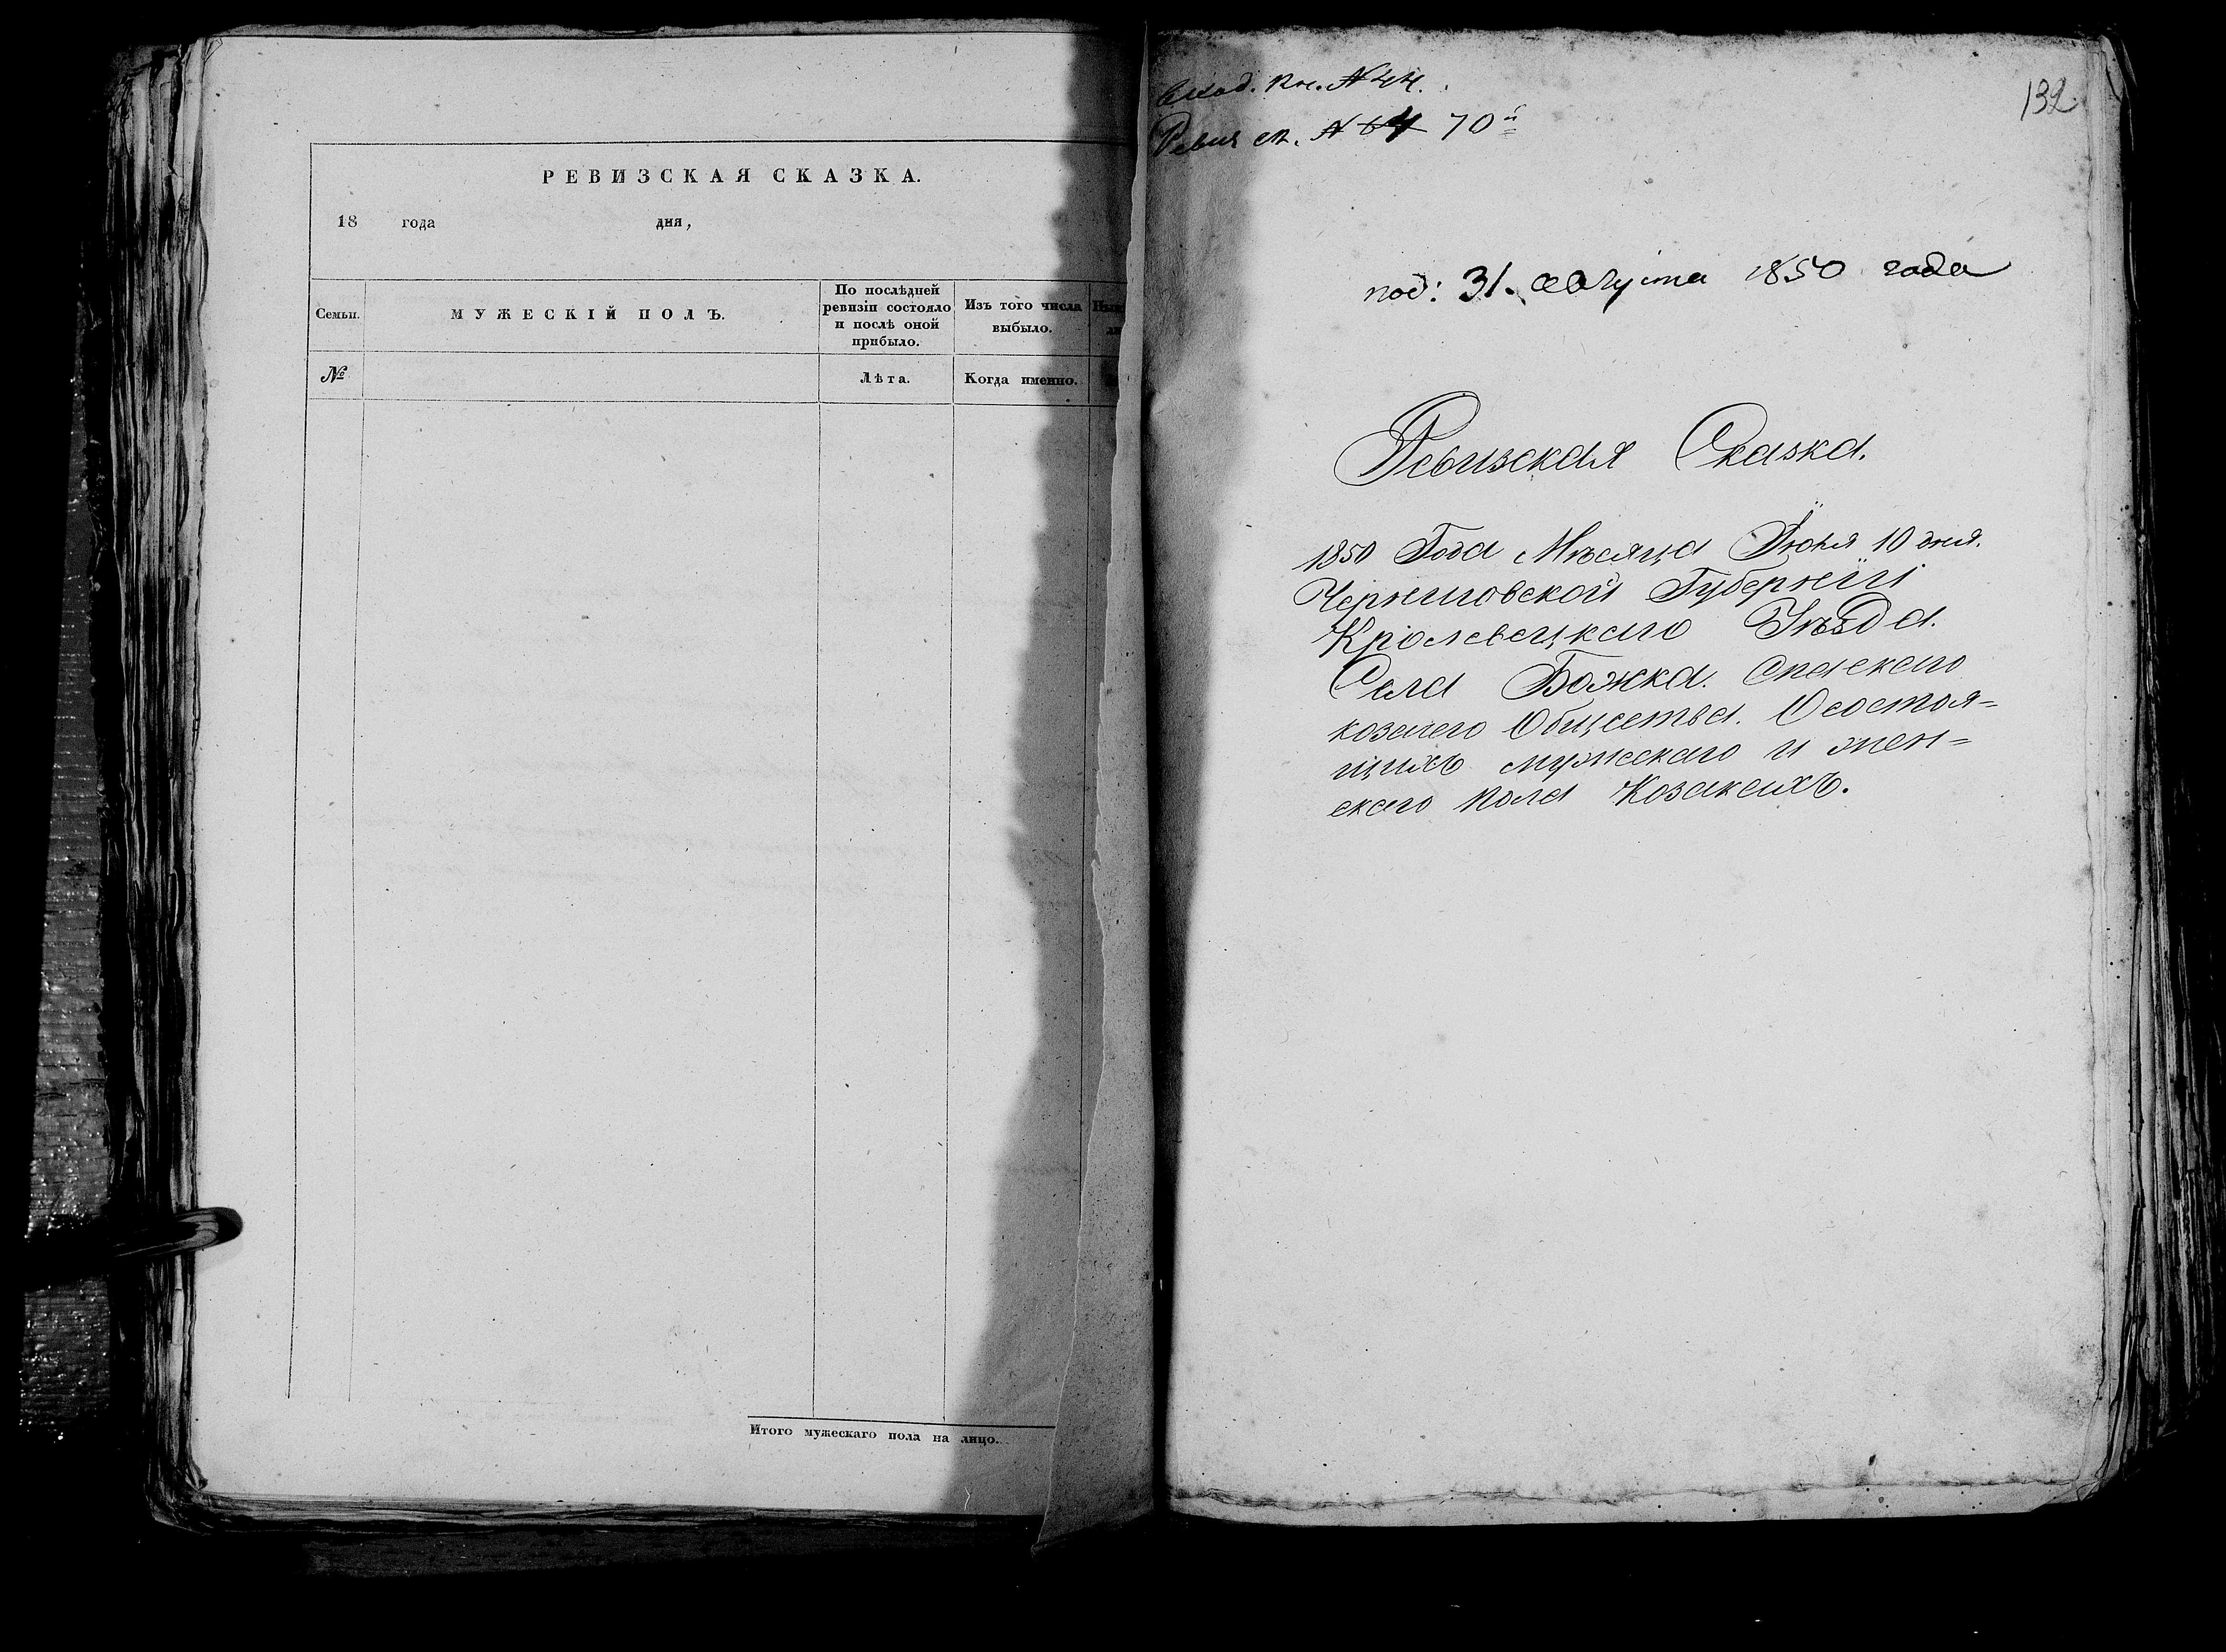 РЕВИЗСКАЯ СКАЗКА.
18 года дня,
Семьи.
МУЖЕСКІЙ ПОЛЪ.
По послѣдней
ревизіи состояло
и послѣ оной
прибыло.
Изъ того числа
выбыло.
№
Лѣта.
Когда именно.
Итого мужескаго пола на лицо.
Вход. кн. № 44.
Ревиз ск. № 64 70й
132
под: 31. августа 1850 года
Ревизская Сказка.
1850 Года Мѣсяца Іюня 10 дня.
Черниговской Губерніи
Кролевецкаго Уѣзда.
Села Божка. Спаскаго
козачего Общества. О состоя=
щихъ мужескаго и жен=
скаго пола Козакахъ.